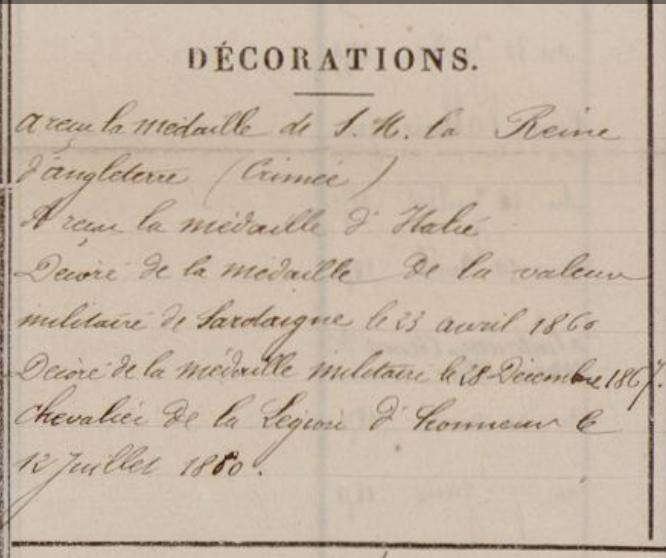 DÉCORATIONS.
a reçu la médaille de S. M. la Reine
d'angleterre (Crimée)
A reçu la médaille d'Italie
Décoré de la médaille de la valeur
militaire de Sardaigne le 23 avril 1860
Décoré de la médaille militaire le 28 Décembre 1867.
Chevalier de la Légion d'honneur le
12 Juillet 1880.